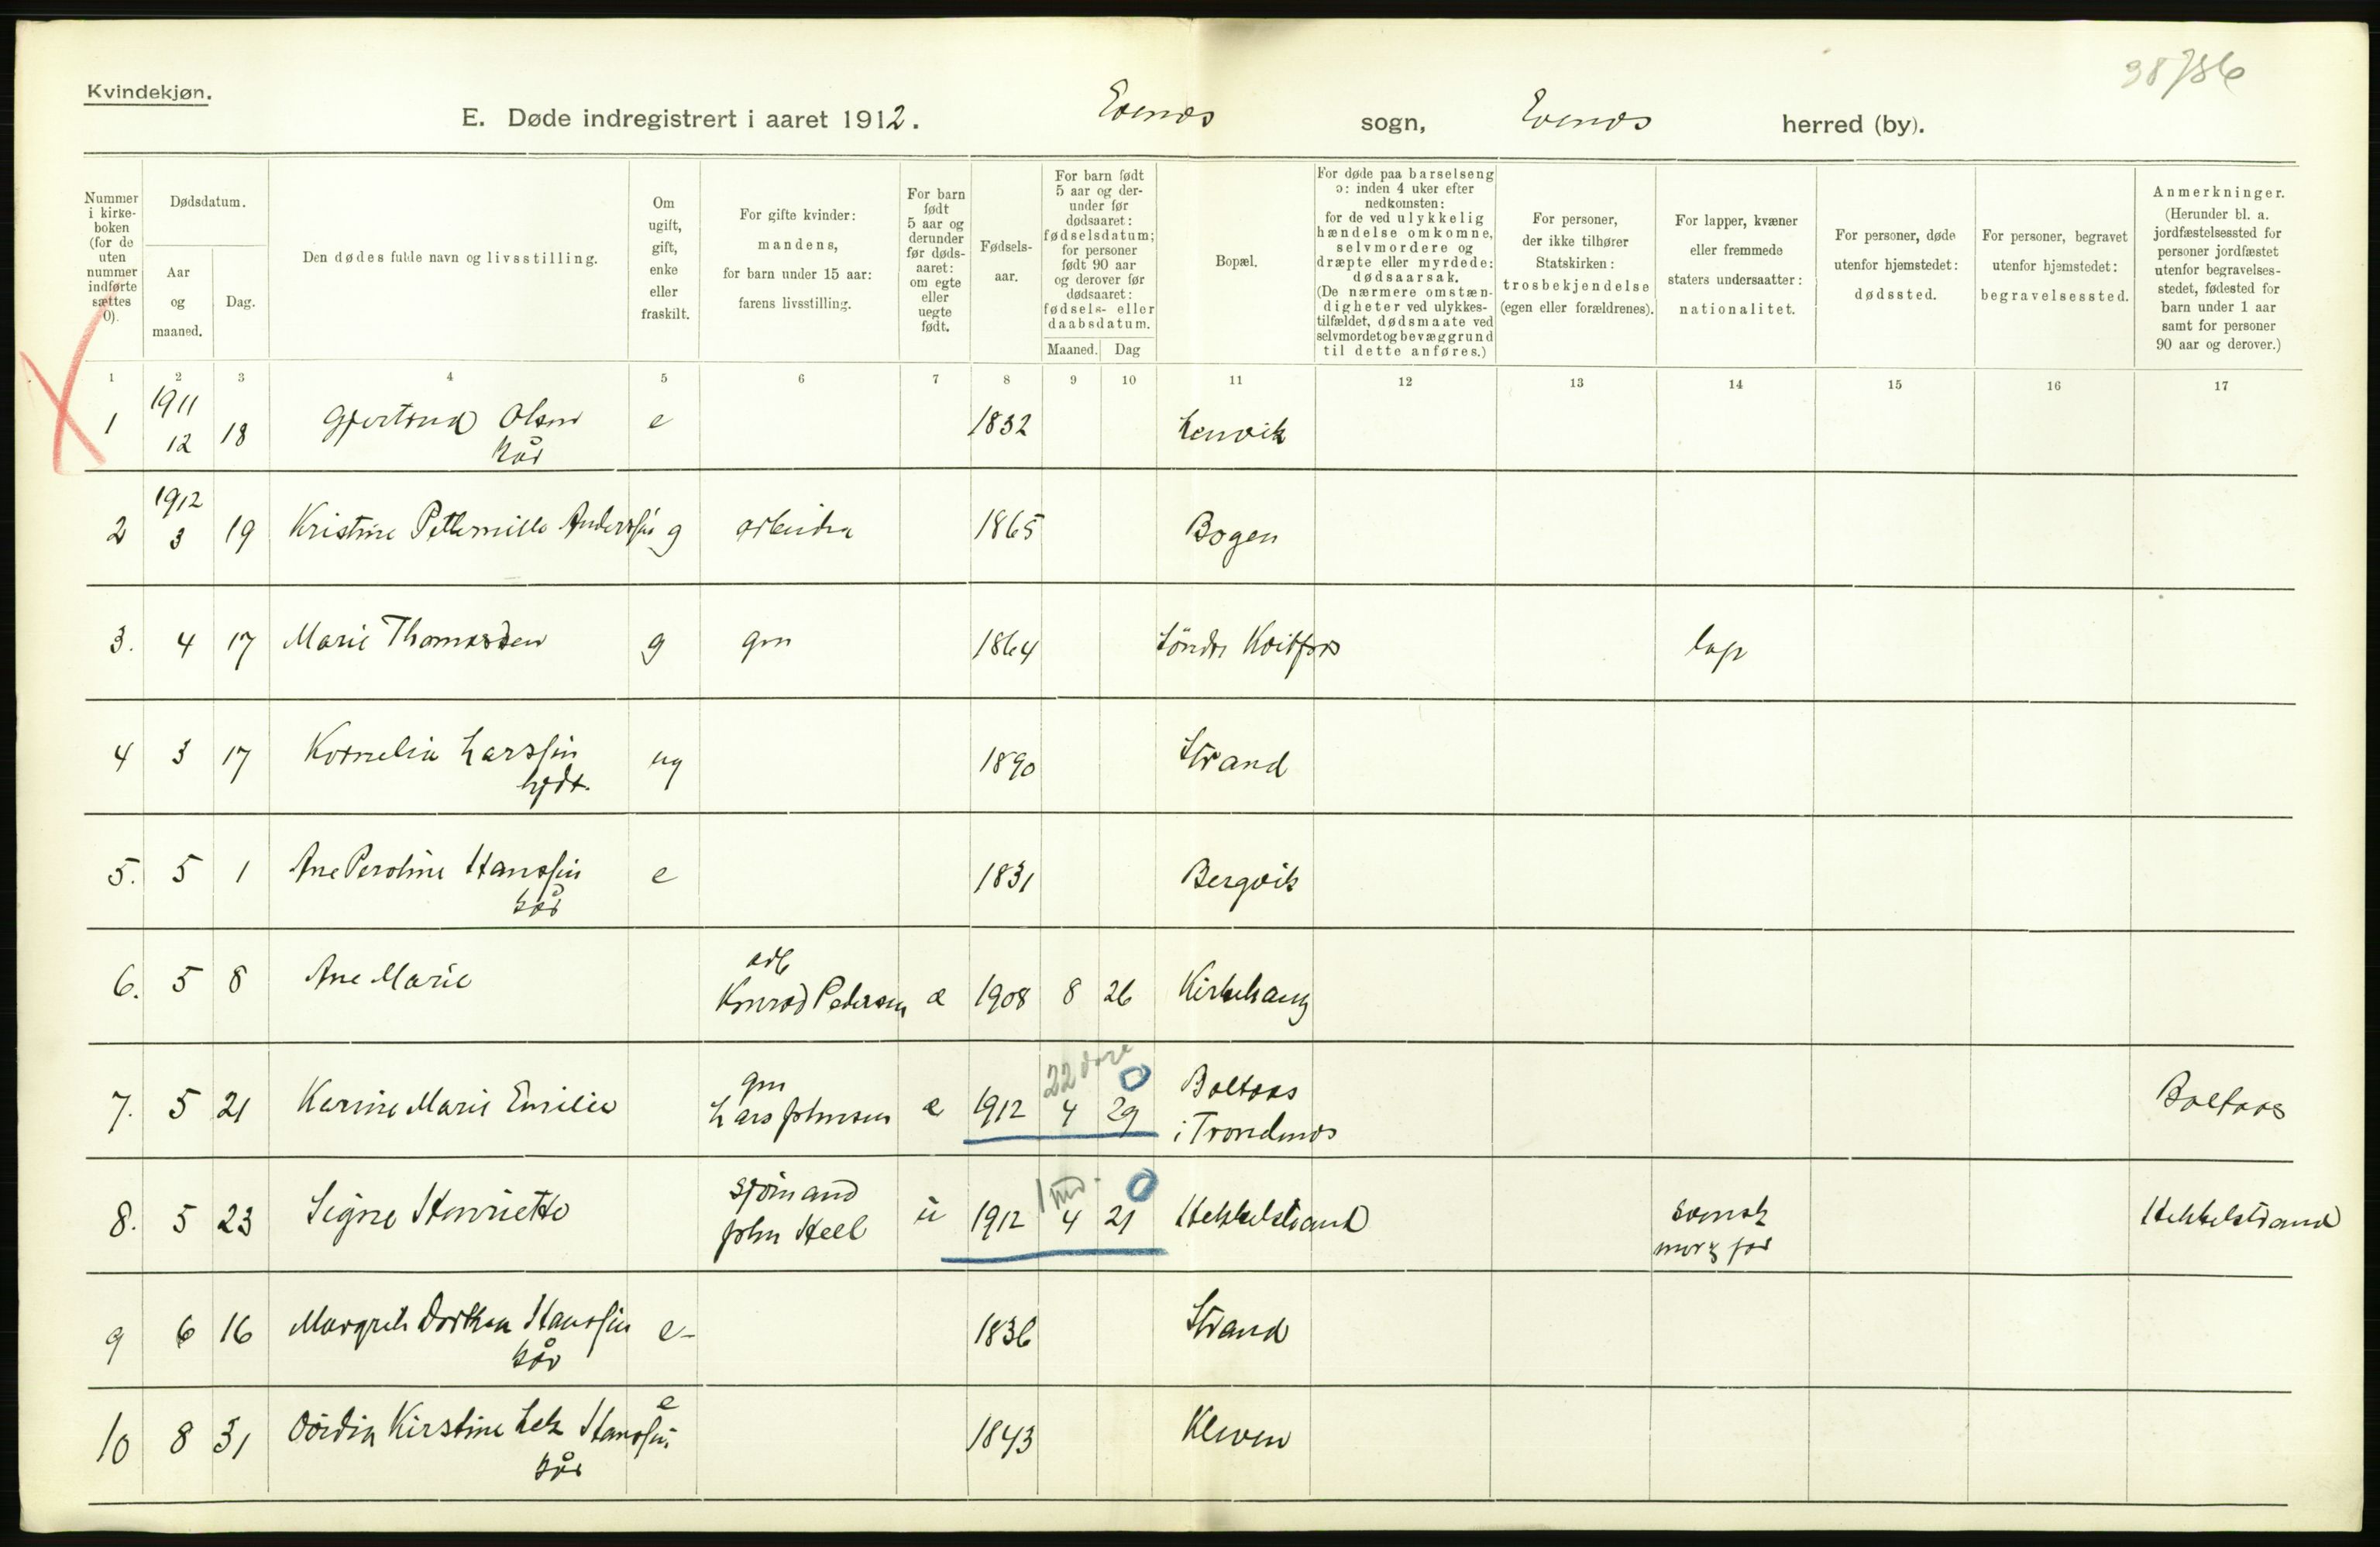 Kvindekjøn.
38786
E. Døde indregistrert i aaret 1912. Evenes sogn, Evenes herred (by).
Nummer i kirke-boken (for de uten nummer indførte sættes 0).
Dødsdatum.
Aar og maaned.
Dag.
Den dødes fulde navn og livsstilling.
Om ugift, gift, enke eller fraskilt.
For gifte kvinder: mandens, for barn under 15 aar: farens livsstilling.
For barn født 5 aar og derunder før døds-aaret: om egte eller uegte født.
Fødsels-aar.
For barn født 5 aar og der-under før dødsaaret: fødselsdatum; for personer født 90 aar og derover før dødsaaret: fødsels- eller daabsdatum.
Maaned. Dag
Bopæl.
For døde paa barselseng ɔ: inden 4 uker efter nedkomsten: for de ved ulykkelig hændelse omkomne, selvmordere og dræpte eller myrdede: dødsaarsak. (De nærmere omstæn-digheter ved ulykkes-tilfældet, dødsmaate ved selvmordet og bevæggrund til dette anføres.)
For personer, der ikke tilhører Statskirken: trosbekjendelse (egen eller forældrenes).
For lapper, kvæner eller fremmede staters undersaatter: nationalitet.
For personer, døde utenfor hjemstedet: dødssted.
For personer, begravet utenfor hjemstedet: begravelsessted.
Anmerkninger. (Herunder bl. a. jordfæstelsessted for personer jordfæstet utenfor begravelses-stedet, fødested for barn under 1 aar samt for personer 90 aar og derover.)
1 2 3 4 5 6 7 8 9 10 11 12 13 14 15 16 17
1911
1 12 18 Gjertrud Olsen e 1832 Lenvik
kår
1912
2 3 19 Kristine Petternille Anderssen g arbeider 1865 Bogen
3. 4 17 Marie Thomassen g gm 1864 Søndre Kvitfors lap
4 3 17 Kornelia Larssen ug 1890 Strand
hjdt.
5. 5 1 Ane Peroline Hanssen e 1831 Bergvik
kår
6. 5 8 Ane Marie arb Konrad Pedersen e 1908 8 26 Kirkehaug
22 dage 0
7. 5 21 Karine Marie Emilie gm Lars Johnsen e 1912 4 29 Boltaas i Trondenes Boltaas
1 md. 0
8. 5 23 Signe Henriette sjømand John Heel u 1912 4 21 Hekkelstrand svensk mor & far Hekkelstrand
9 6 16 Margrete Dorthea Hanssen e- 1836 Strand
kår
10 8 31 Dordia Kirstine Lek Hanssen e 1843 Kleven
kår